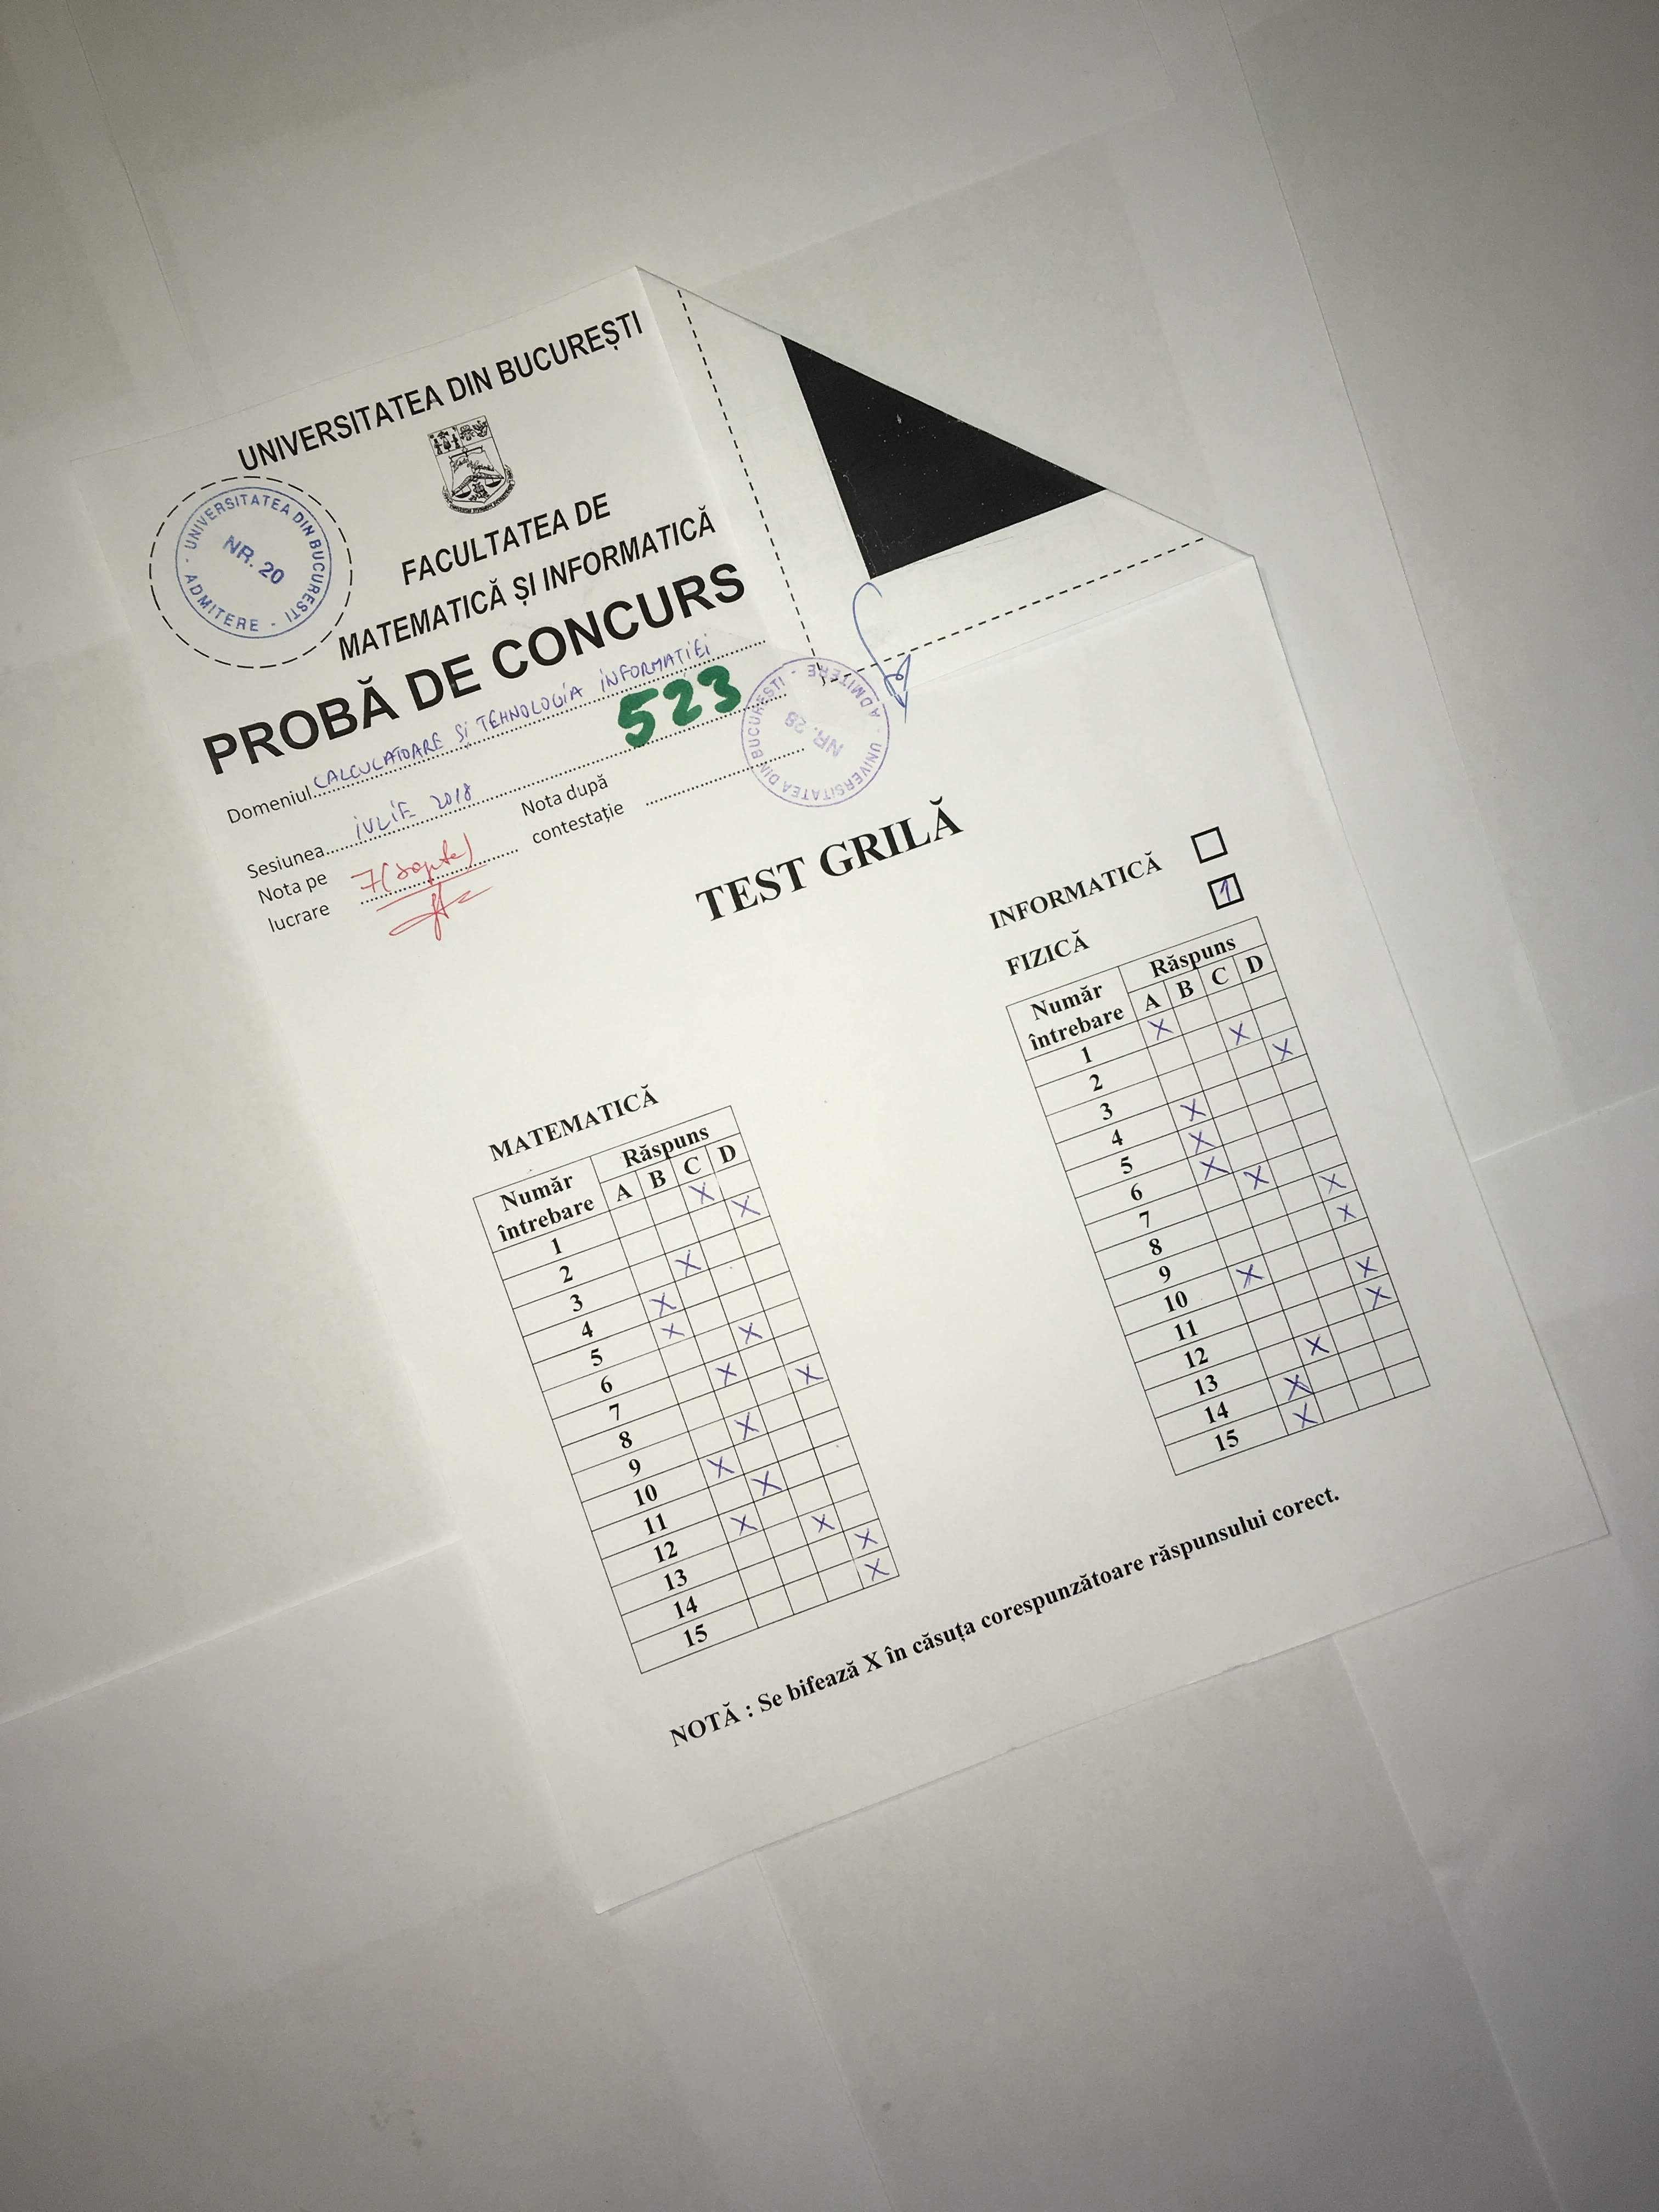 UNIVERSITATEA DIN BUCUREȘTI
UNIVERSITATEA DIN BUCURESTI - ADMITERE -
NR. 20
FACULTATEA DE
MATEMATICĂ ȘI INFORMATICĂ
PROBĂ DE CONCURS
Domeniul CALCULATOARE ȘI TEHNOLOGIA INFORMAȚIEI
523
Sesiunea IULIE 2018
Nota pe lucrare 7(șapte)
Nota după contestație
UNIVERSITATEA DIN BUCURESTI - ADMITERE -
NR. 28
TEST GRILĂ
MATEMATICĂ
Număr întrebare Răspuns
A B C D
1 X
2 X
3 X
4 X
5 X
6 X
7 X
8 X
9 X
10 X
11 X
12 X
13 X
14 X
15 X
INFORMATICĂ
FIZICĂ 1
Număr întrebare Răspuns
A B C D
1 X
2 X
3 X
4 X
5 X
6 X
7 X
8 X
9 X
10 X
11 X
12 X
13 X
14 X
15 X
NOTĂ : Se bifează X în căsuța corespunzătoare răspunsului corect.